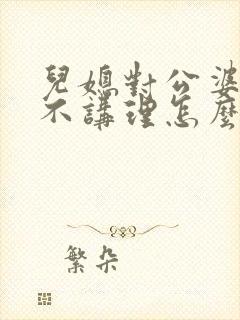 兒媳對公婆
不講理怎麼
繁朵